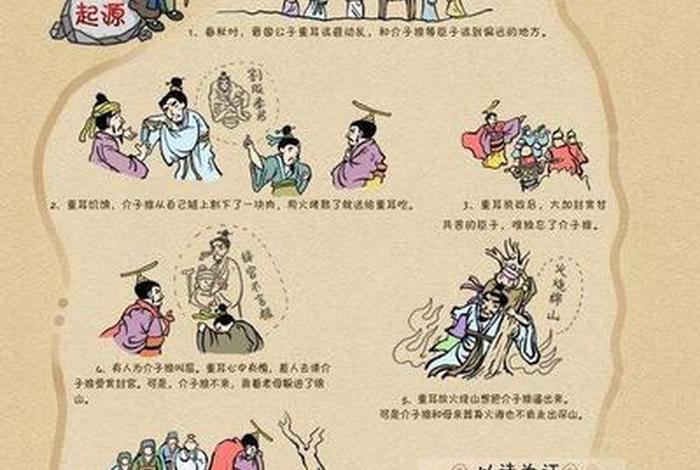 起源
1、春秋时，晋国公子重耳逃避动乱，和介子推等臣子逃到偏远的地方。
割股奉君
2、重耳饥饿，介子推从自己腿上割下了一块肉，用火烤熟了就送给重耳吃。
3、重耳执政后，大加封赏甘
共苦的臣子，唯独忘了介子推。
拒官不言禄
火烧绵山
4、有人为介子推叫屈。重耳心中有愧，差人去请介
子推受赏封官。可是，介子推不来，背着老母躲进了绵
山。
5、重耳放火烧山想把介子推逼出来。
可是介子推和母亲葬身火海也不肯走出深山。
以清为证